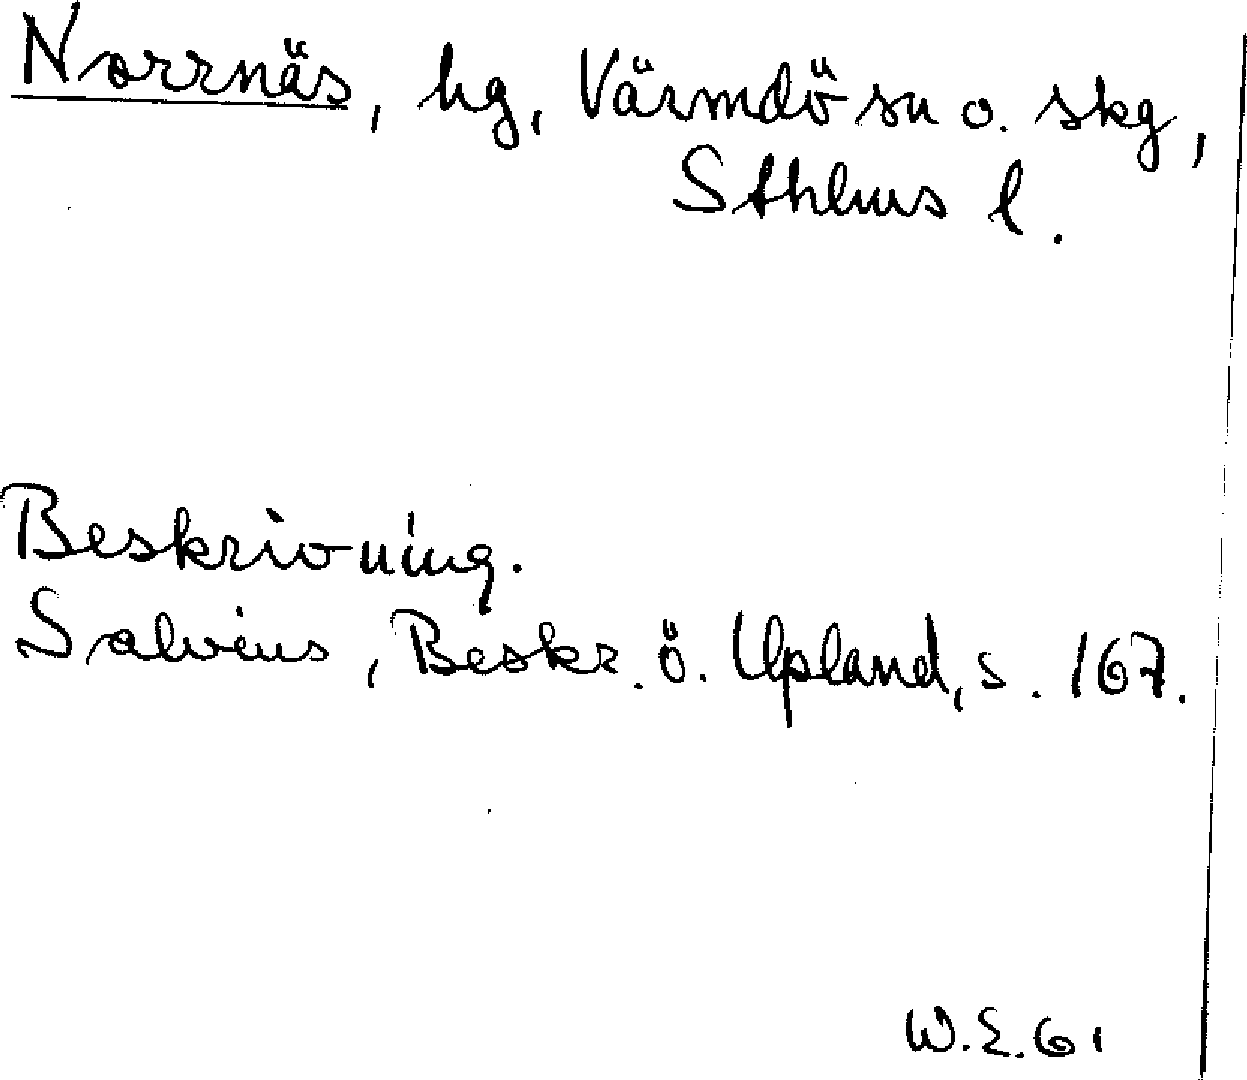 Norrnäs, hg, Värmdö sn o. skg,
Sthlms l.
Beskrivning.
Salvius, Beskr. ö. Upland, s. 167.
W.E. 61